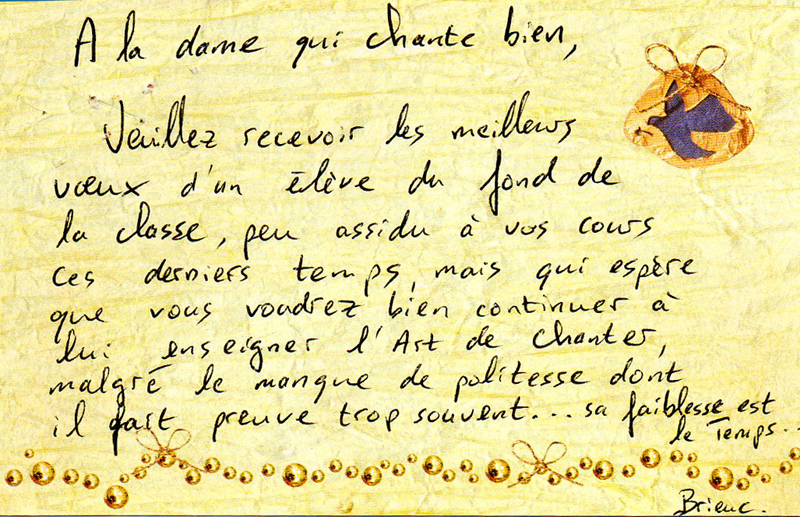 A la dame qui chante bien,
Veuillez recevoir les meilleurs
vœux d'un élève du fond de
la classe, peu assidu à vos cours
ces derniers temps, mais qui espère
que vous voudrez bien continuer à
lui enseigner l'Art de Chanter,
malgré le manque de politesse dont
il fait preuve trop souvent... sa faiblesse est
le Temps...
Brieuc.